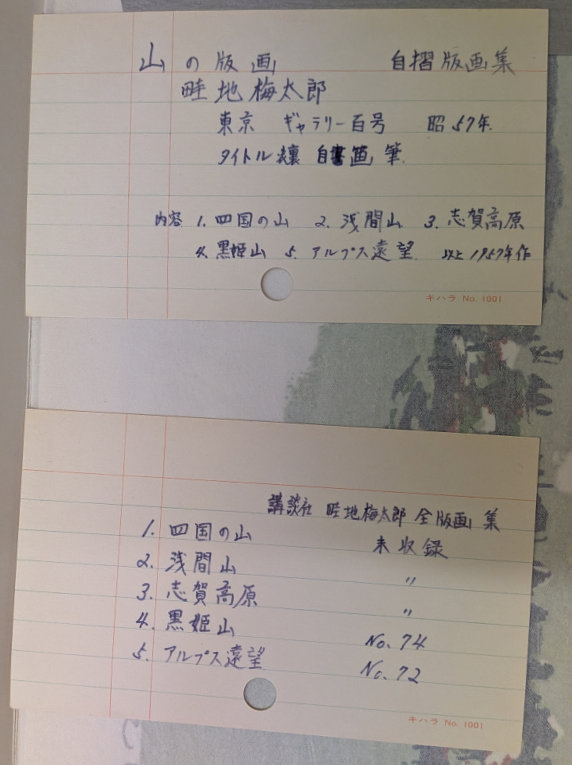 山の版画 自摺版画集
畦地梅太郎
東京 ギャラリー百号 昭57年.
タイトル 自 画 筆.
内容 1. 四国の山 2. 浅間山 3. 志賀高原
4. 黒姫山 5. アルプス遠望 以上1957年作
キハラ No. 1001
講談社 畦地梅太郎 全版画集
1. 四国の山 未収録
2. 浅間山 〃
3. 志賀高原 〃
4. 黒姫山 No. 74
5. アルプス遠望 No. 72
キハラ No. 1001